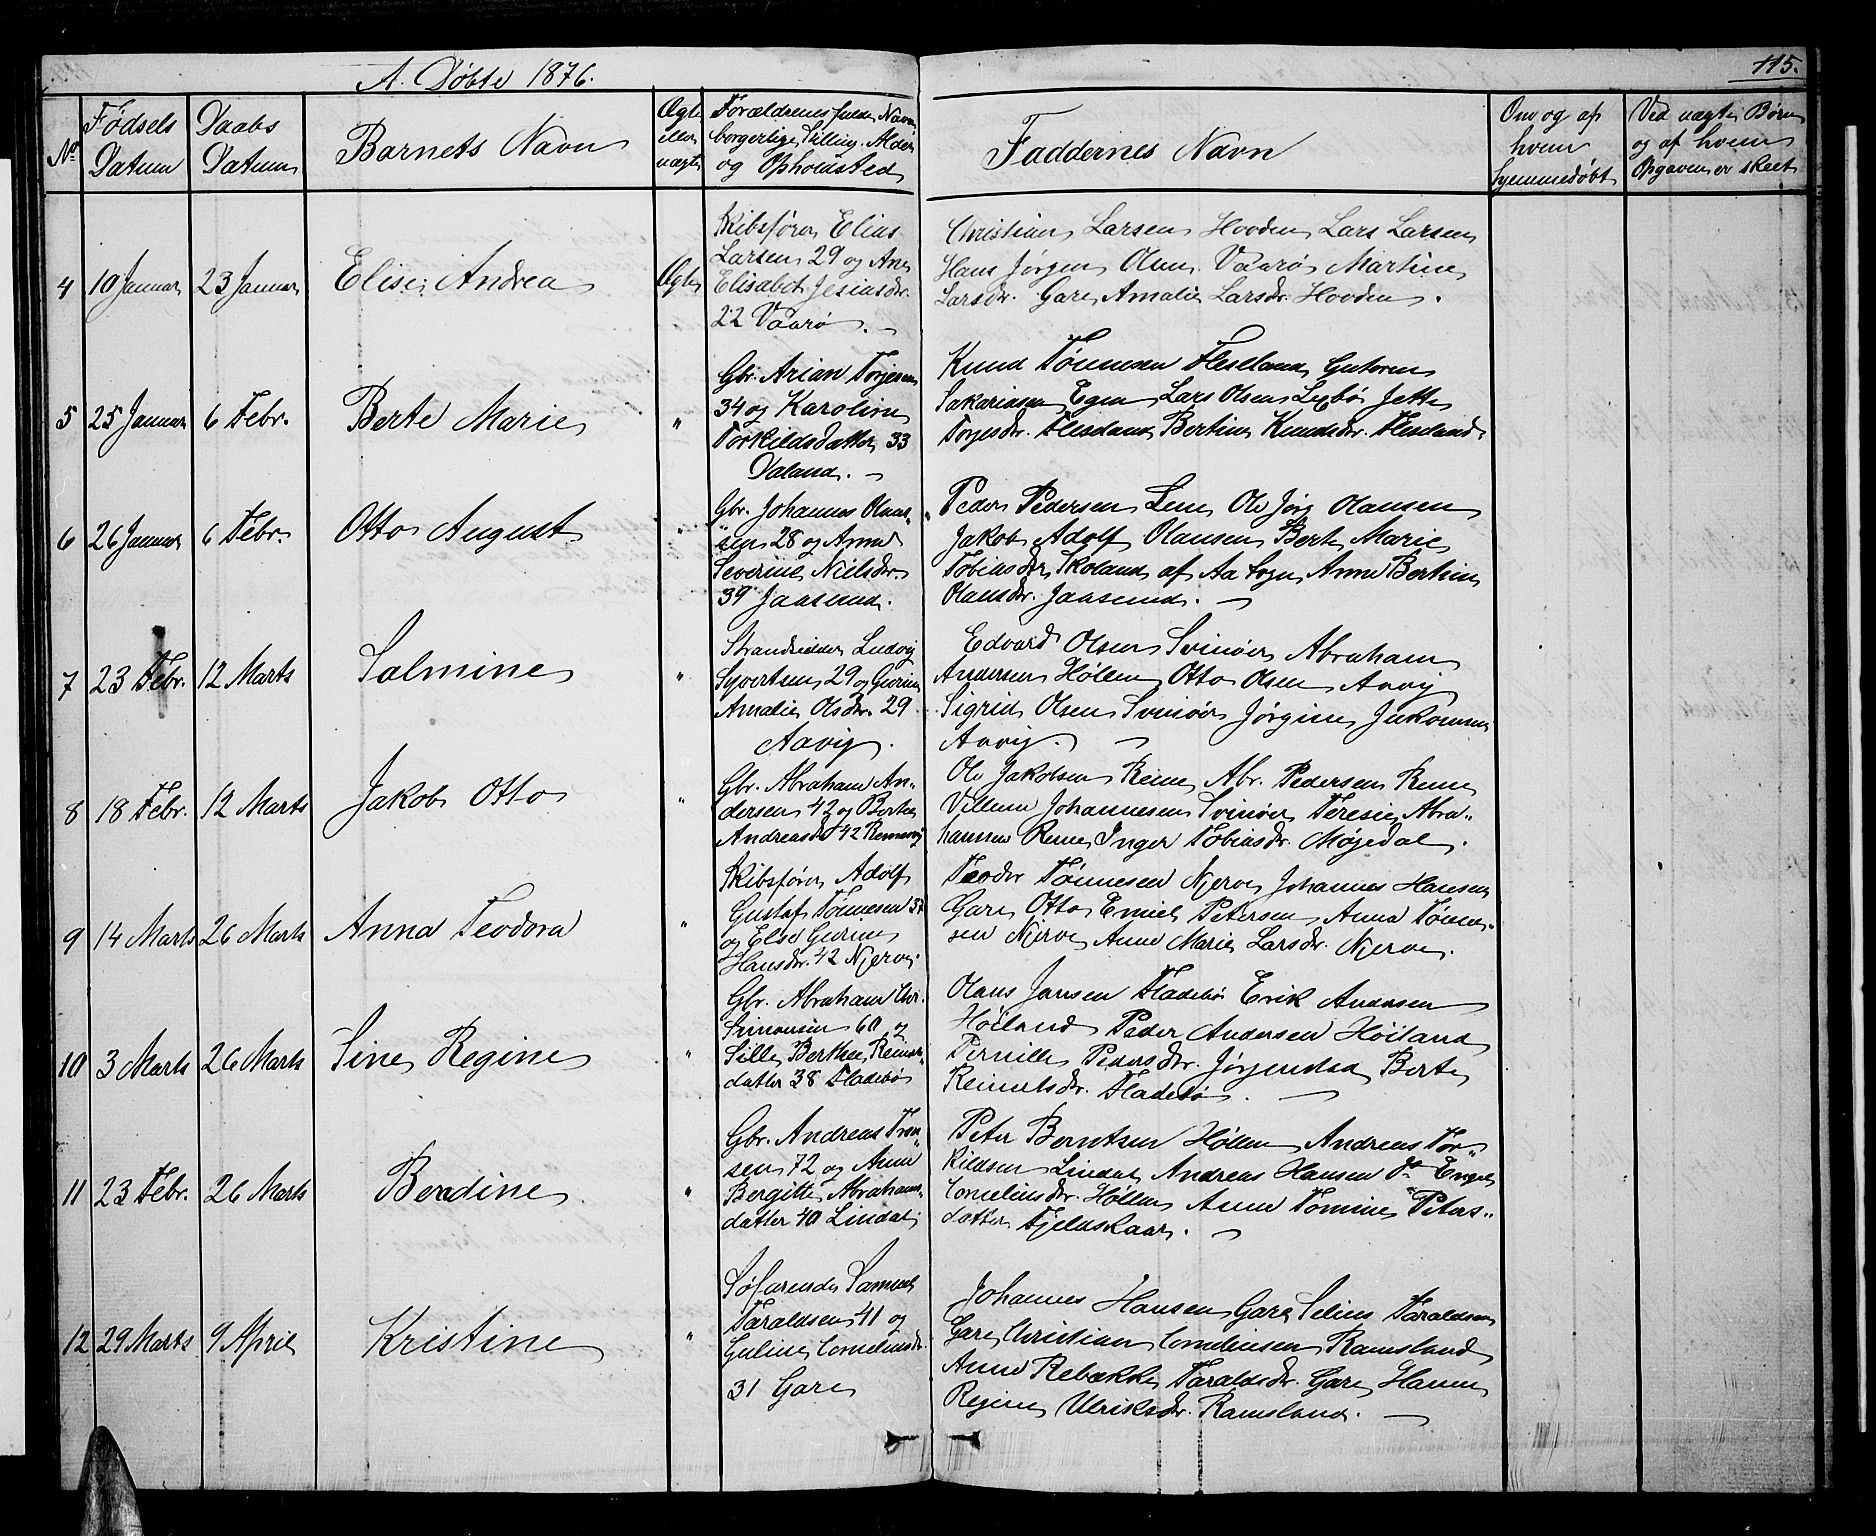 A. Døbte 1876.
115.
No
Fødsels Datum
Daabs Datum
Barnets Navn
Ægte eller uægte
Forældrenes fulde Navn
borgerlige Stilling. Alder
og Opholdsted
Faddernes Navn
Om og af hvem hjemmedøbt
Ved uægte Børn og af hvem Opgaven er skeet
4 10 Januar 23 Januar Elise Andrea Ægte
Skibsfører Elias
Larsen 29 og Ane
Elisabet Jesiasdr.
22 Vaarø. –
Christian Larsen Hovden Lars Larsen
Hans Jørgen Olsen Vaarø Martine
Larsdr. Gare Amalie Larsdr. Hovden.
5 25 Januar 6 Febr. Berte Marie "
Gbr. Arian Torjesen
34 og Karoline
Torkildsdatter 33
Valand. –
Knud Tønnesen Fleseland Gutorm
Sakariasen Egen Lars Olsen Jette
Torjesdr. Fleseland Bertine Knudsdr. Fleseland.
6 26 Januar 6 Febr. Otto August "
Gbr. Johannes Olaus-
sen 28 og Anne
Severine Nielsdr.
39 Jaasund.
Peder Pedersen Lene Ole Jørg Olausen
Jakob Adolf Olausen Berte Marie
Tobiasdr. Skoland af Aa Sogn Anne Bertine
Olausdr. Jaasund. –
7 23 Febr. 12 Marts Salmine "
Strandsidder Ludvig
Syvertsen 29 og Gurine
Amalie Olsdr. 29
Aavig.
Edvard Olsen Svinøer Abraham
Andersen Høllen Otto Olsen Aavig
Sigrid Olsen Svinøer Jørgine
Aavig. –
8 18 Febr. 12 Marts Jakob Otto "
Gbr. Abraham An-
dersen 42 og Berte
Andreasdr 42 Remesvig
Ole Jakobsen Reme Abr. Pedersen Reme
Villum Johannesen Svinøer Teresie Abra-
hamsen Reme Inger Tobiasdr. Møgedal.
9 14 Marts 26 Marts Anna Teodora "
Skibsfører Adolf
Gustaf Tønnesen
og Else Gurine
Hansdr. 42 Njerve.
Teodor Tønnesen Njerve Johannes Hansen
Gare Otto Emiel Petersen Anna Tønne-
sen Njerve Anne Marie Larsdr. Njerve.
10 3 Marts 26 Marts Sine Regine "
Gbr. Abraham Chr.
Simonsen 60 og
Sille Berthe Reiners-
datter 38 Fladebø
Olaus Jansen Fladebø Erik Andersen
Høiland Peder Andersen Høiland
Pernille Pedersdr. Berte
Reinertsdr. Fladebø. –
11 23 Febr. 26 Marts Berdine "
Gbr. Andreas Tron-
sen 72 og Anne
Bergitte Abrahams-
datter 40 Lindal
Peter Berntsen Høllen Andreas Tor-
kildsen Lindal Andreas Hansen Do Engel
Corneliusdr. Høllen Anne Tomine Peters-
datter Fjeldskaar. –
12 29 Marts 9 April Kristine "
Søfarende Samuel
Taraldsen 41 og
Guline Corneliusdr.
31 Gare
Johannes Hansen Gare Selius Taraldsen
Gare Christian Corneliusen Ramsland
Anne Rebekke Taraldsdr. Gare Hanne
Regine Ulriksdr. Ramsland. –